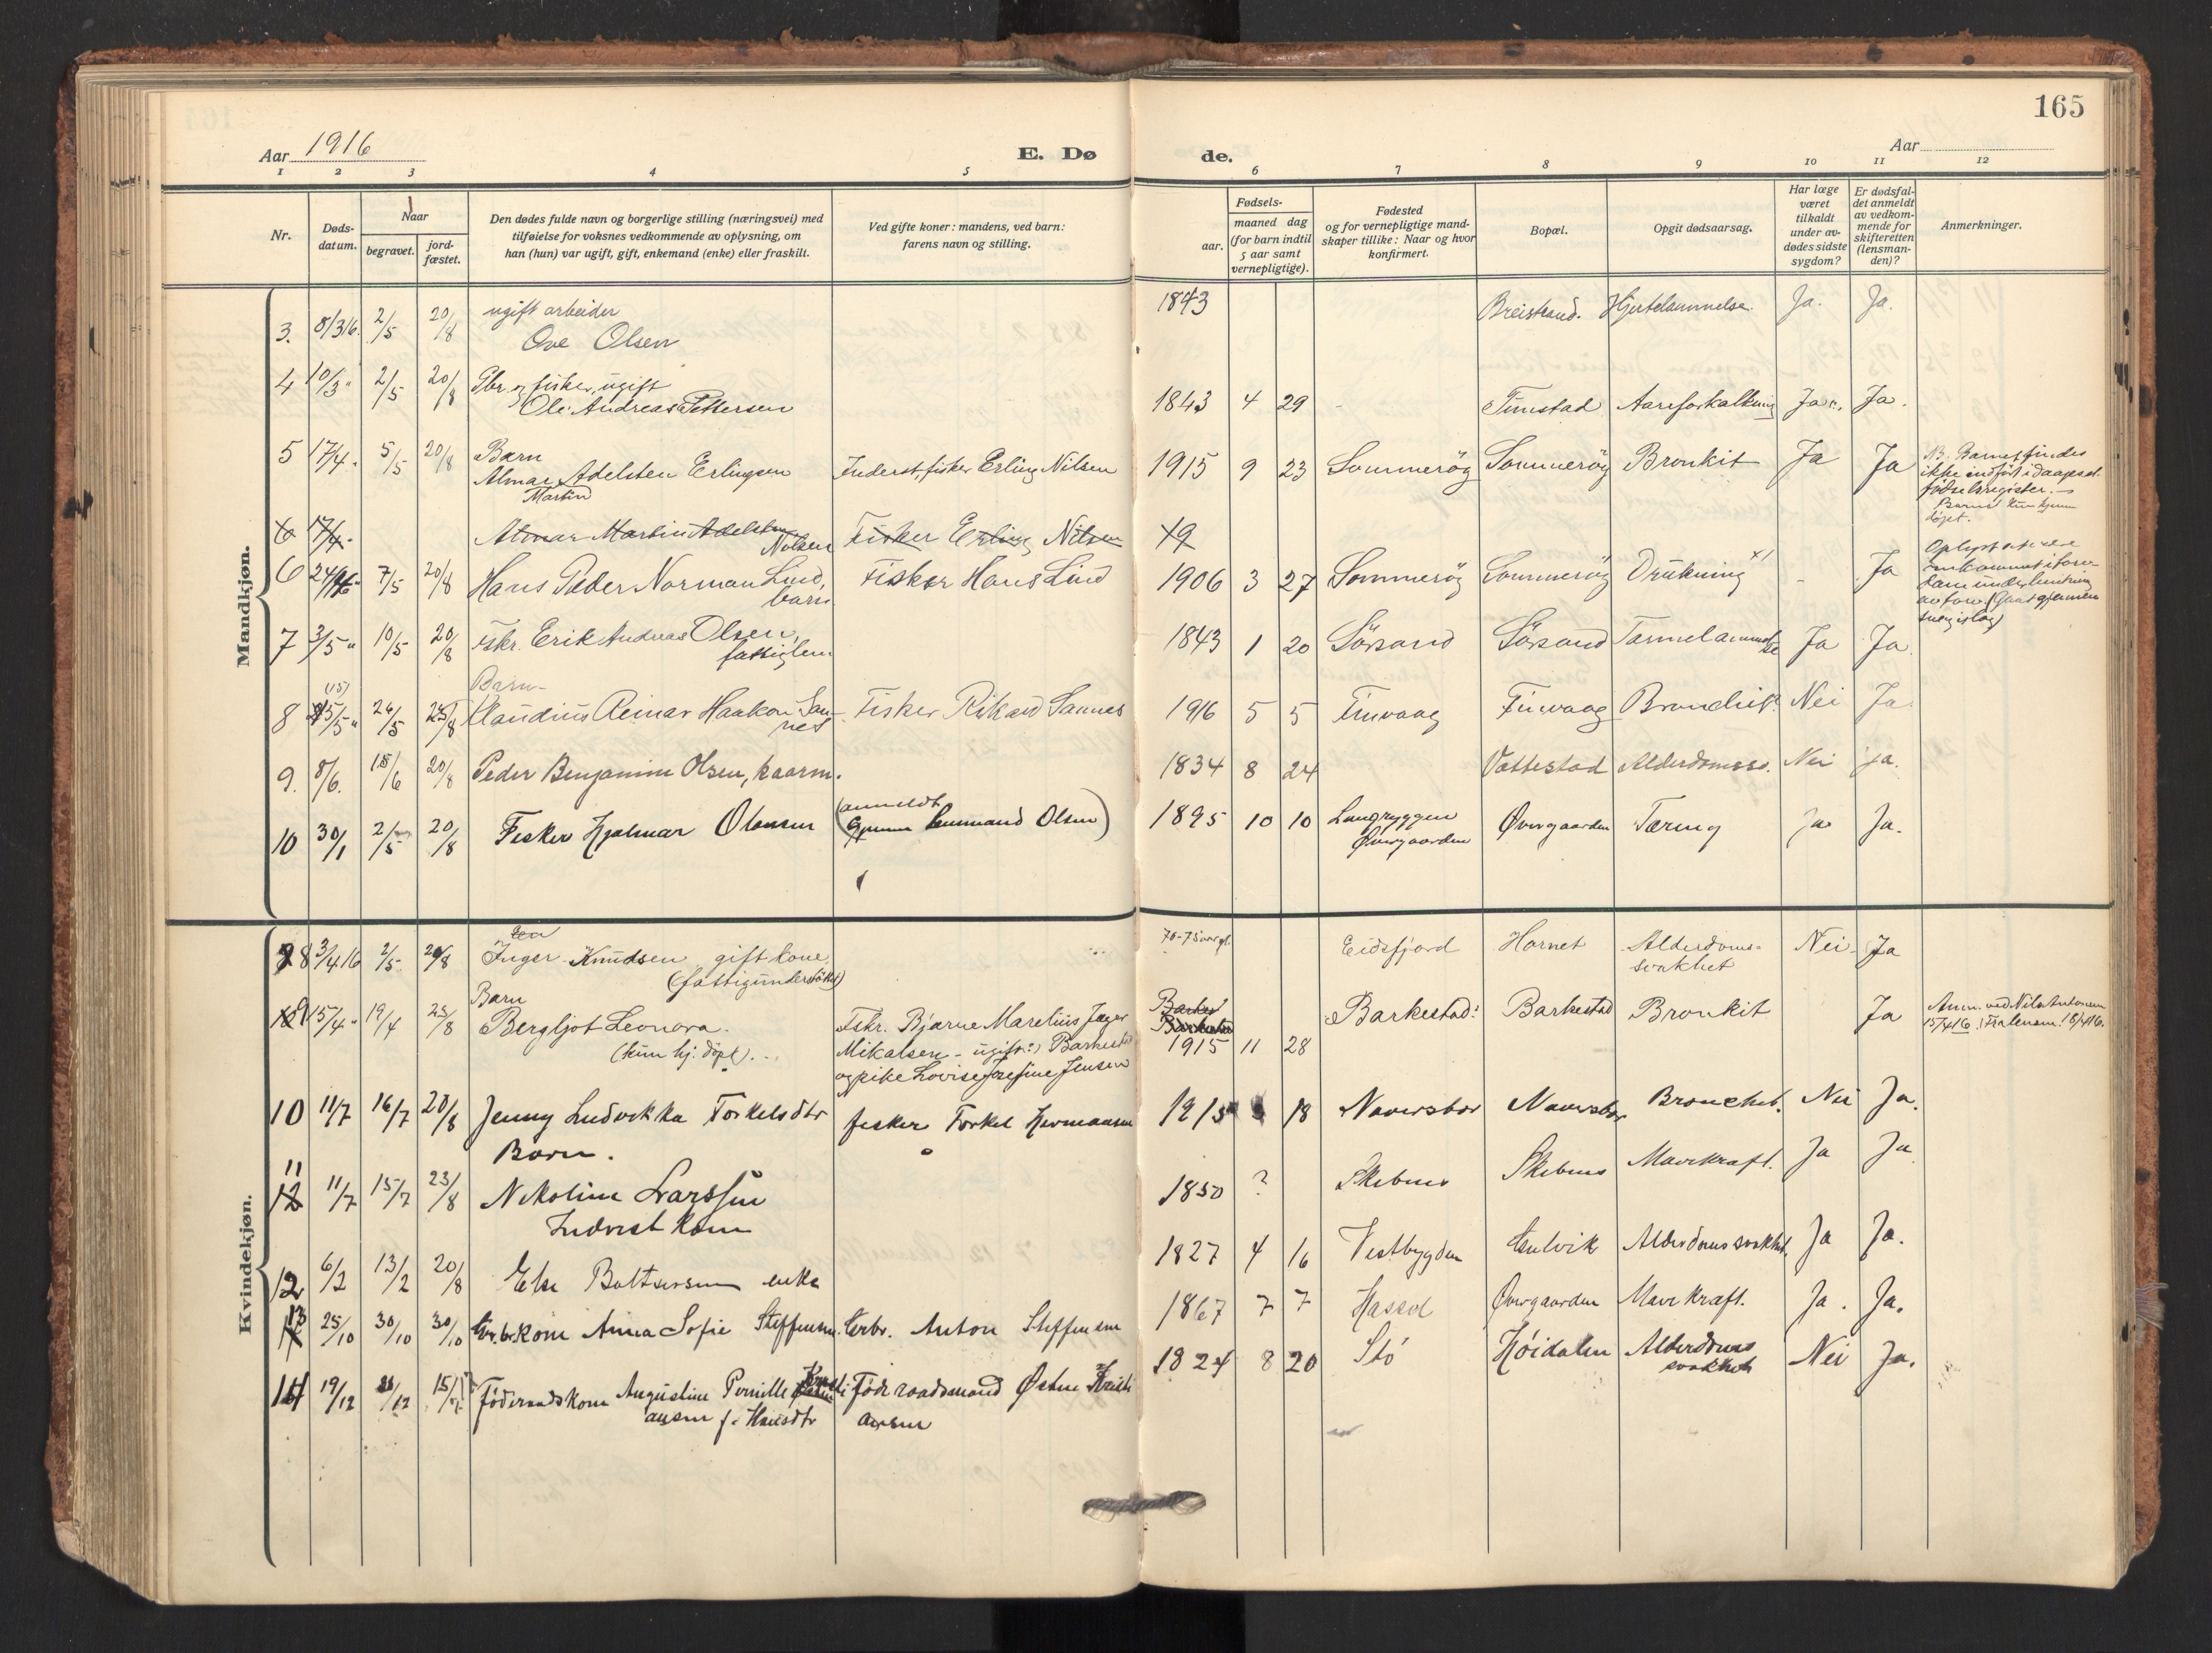 165
Aar 1916
E. Dø
de.
Aar
1 2 3 4 5 6 7 8 9 10 11 12
Nr.
Døds-
datum.
Naar
begravet.
jord-
fæstet.
Den dødes fulde navn og borgerlige stilling (næringsvei) med
tilføielse for voksnes vedkommende av oplysning, om
han (hun) var ugift, gift, enkemand (enke) eller fraskilt.
Ved gifte koner: mandens, ved barn:
farens navn og stilling.
Fødsels-
aar.
maaned dag
(for barn indtil
5 aar samt
vernepligtige).
Fødested
og for vernepligtige mand-
skaper tillike: Naar og hvor
konfirmert.
Bopæl.
Opgit dødsaarsag.
Har læge
været
tilkaldt
under av-
dødes sidste
sygdom?
Er dødsfal-
det anmeldt
av vedkom-
mende for
skifteretten
(lensman-
den)?
Anmerkninger.
Mandkjøn.
ugift arbeider
3. 8/3 16. 2/5 20/8 Ove Olsen 1843 Breistrand. Hjertelammelse. Ja. Ja.
4 10/3 " 2/5 20/8 Gbr. og fisker, ugift
Ole Andreas Pettersen 1843 4 29 Tinistad Aareforkalkning Ja. Ja.
5 17/4 " 5/5 20/8 Barn
Almar Adelsten Erlingsen Inderst, fisker Erling Nilsen 1915 9 23 Sommerøy Sommerøy Bronkit Ja Ja
Martin
NB. Barnet findes
ikke indført i daapsed.
fødselsregister. –
Barnet kun hjem
døpt.
6 17/4 " Almar Martin Adelsten
Nilsen Fisker Erling Nilsen 19
6 24/4 16 7/5 20/8 Hans Peder Norman Lind,
barn Fisker Hans Lind 1906 3 27 Sommerøy Sommerøy Drukning x) - Ja
7 3/5 " 10/5 20/8 Fskr. Erik Andreas Olsen,
fattiglem 1843 1 20 Sørsand Sørsand Tarmelammelse Ja Ja.
Barn
8 (15) 15/5 " 26/5 25/8 Klaudius Reinar Haakon San-
nes Fisker Rikard Sannes 1916 5 5 Finvaag Finvaag Bronchit. Nei Ja.
9. 8/6. 18/6 20/8 Peder Benjamin Olsen, kaarm. 1834 8 24 Vottestad Alderdomssv. Nei Ja.
10 30/1 2/5 20/8 Fisker Hjalmar Olansen (anmeldt
gjennem lensmand Olsen) 1895 10 10 Langryggen
Øvergaarden Øvergaarden Tæring Ja Ja.
Kvindekjøn.
8 3/4 16 2/5 20/8 Inger Knudsen gift kone,
(fattigunderstøttet) 70-75 aar gl. Eidsfjord Hornet Alderdoms-
svakhet Nei Ja
9 15/4 " 19/4 25/8 Barn
Bergljot Leonora.
(kun hj. døpt). Fskr. Bjarne Marelius Jager
Mikalsen – ugift?) Barkestad
og pike Lovise Josefine Jensen
1915 11 28 Barkestad Barkestad Bronkit Ja Anm. ved Nils Antonsen
15/4 16. Fra lensm. 18/4 16.
10 11/7 16/7 20/8 Jenny Ludvikka Torkelsdtr
Barn. fisker Torkel Hermansen 1915 18 Naversbor Naversbor Bronchit. Nei Ja.
11 11/7 15/7 23/8 Nikoline Larssen
Inderst kone 1850 ? Skibnes Skibnes Mavekraft. Ja Ja
12 6/2 13/2 20/8 Else Baltsersen enke 1827 4 16 Vestbygden Gulvik Alderdomssvakhet Ja Ja.
13 25/10 30/10 30/10 Gr.br.kone Anna Sofie Steffensen. Grbr. Anton Steffensen 1867 7 7 Hassel Øvergaarden Mavekraft. Ja. Ja.
14 19/12 /12 15/ Føderaadskone Augustine Pernille Kristi
ansen f. Hansdtr Føderaadsmand Østen Kristi
ansen 1824 8 20 Stø Høidalen Alderdoms
svakhet Nei Ja.